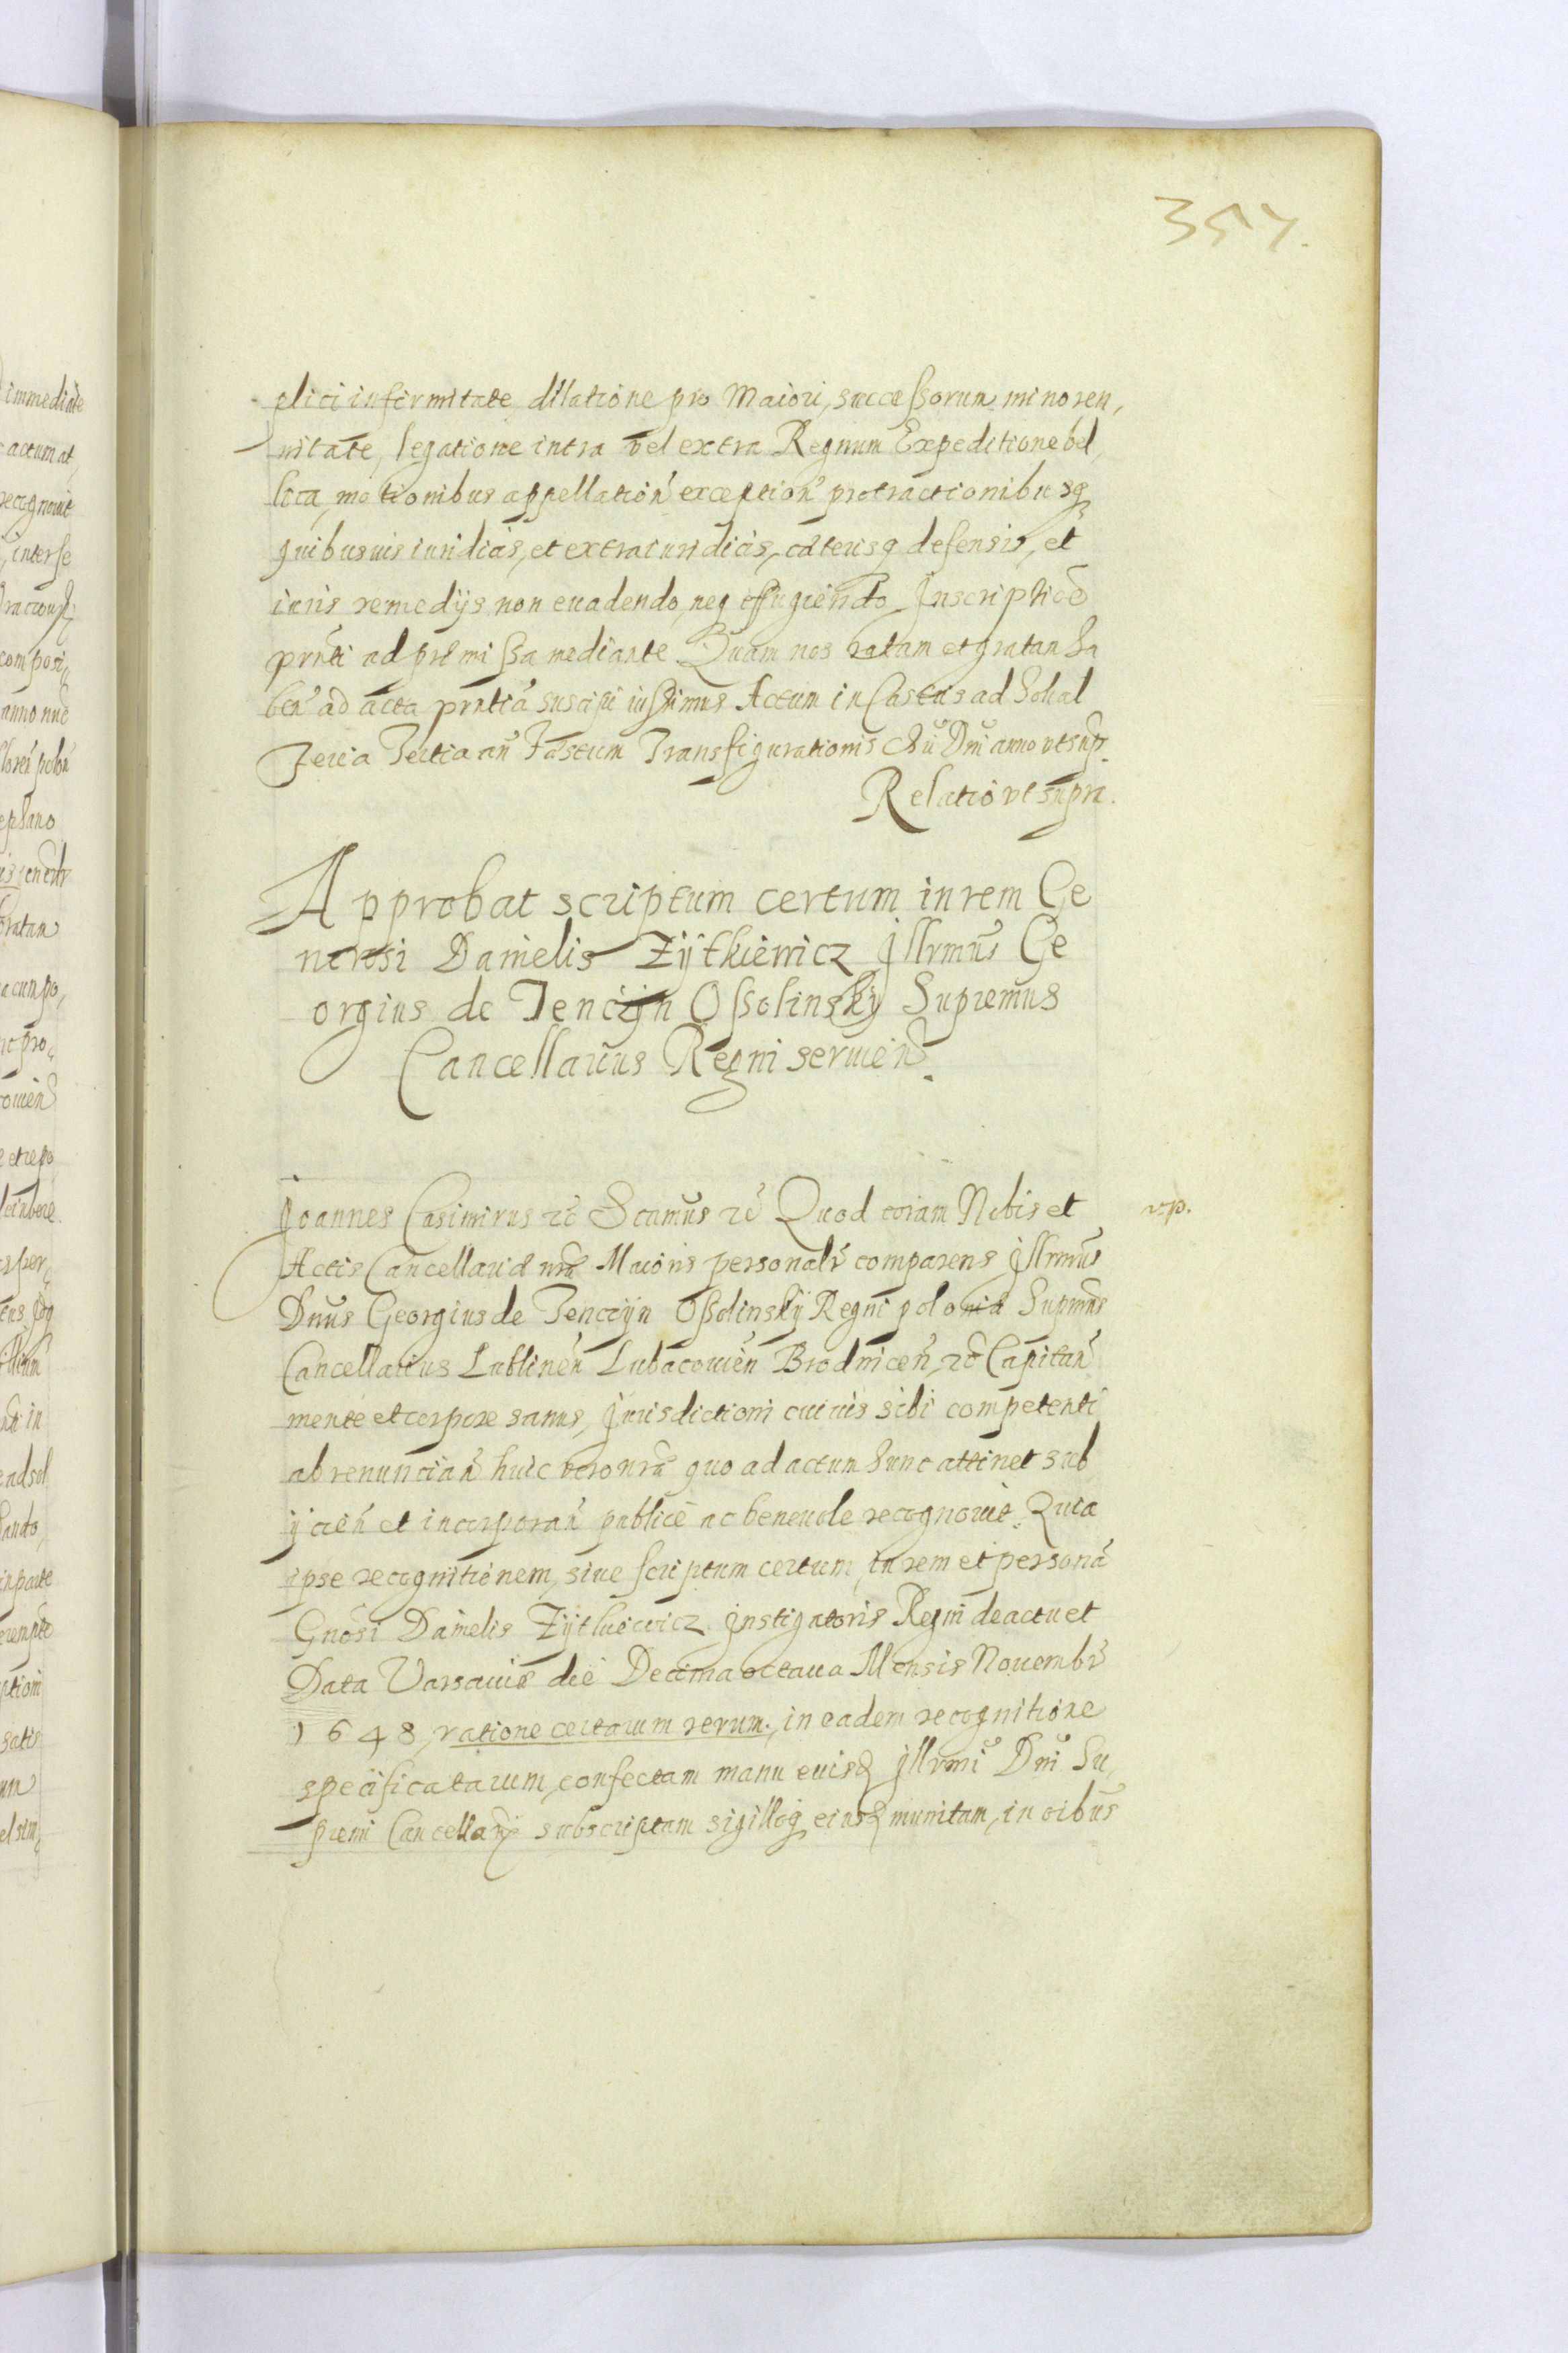 357.
plici infirmitate dilatione pro Maiori, successorum minoren,
nitate, legatione intra vel extra Regnum Expeditione bel,
lica, motionibus appellation exception protractionibusq
quibusuis iuridicis, et extraiuridicis, cæterisq defensis, et
iuris remedijs non euadendo, neq effugiendo Inscriptioe
prnti ad præmissa mediante Quam nos ratam et gratam ha
ben ad acta prntia suscipi iussimus Actum in Castris ad Sokal
Feria Tertia an Festum Transfigurationis Chri Dni anno ut sup.
Relatio ut supra.
Approbat scriptum certum in rem Ge
nerosi Danielis Zÿtkiewicz Illrmus Ge
orgius de Tenczÿn Ossolinskÿ Supremus
Cancellarius Regni seruien.
Joannes Casimirus rc Scamus rc Quod coram Nobis et
Actis Cancellariæ nræ Maioris personalr comparens Illrmus
Dnus Georgius de Tenczÿn Ossolinskÿ Regni poloniæ Supmus
Cancellarius Lublinen Lubacouien Brodnicen, rc Capitan
mente et corpore sanus, Iurisdictioni cuiuis sibi competenti
abrenuncian huic vero nræ quo ad actum hunc attinet sub
ijcien et incorporan publice ac beneuole recognouit. Quia
ipse recognitionem, siue scriptum certum, in rem et persona
Gnosi Danielis Zÿtkiewicz Instigatoris Regni de actu et
Data Varsauiæ die Decima octaua Mensis Nouembr
1648, ratione certarum rerum, in eadem recognitione
specificatarum, confectam manu euisd Illrmi Dni Su,
premi Cancellarij subscriptam sigilloq eiusd munitam, in oibus